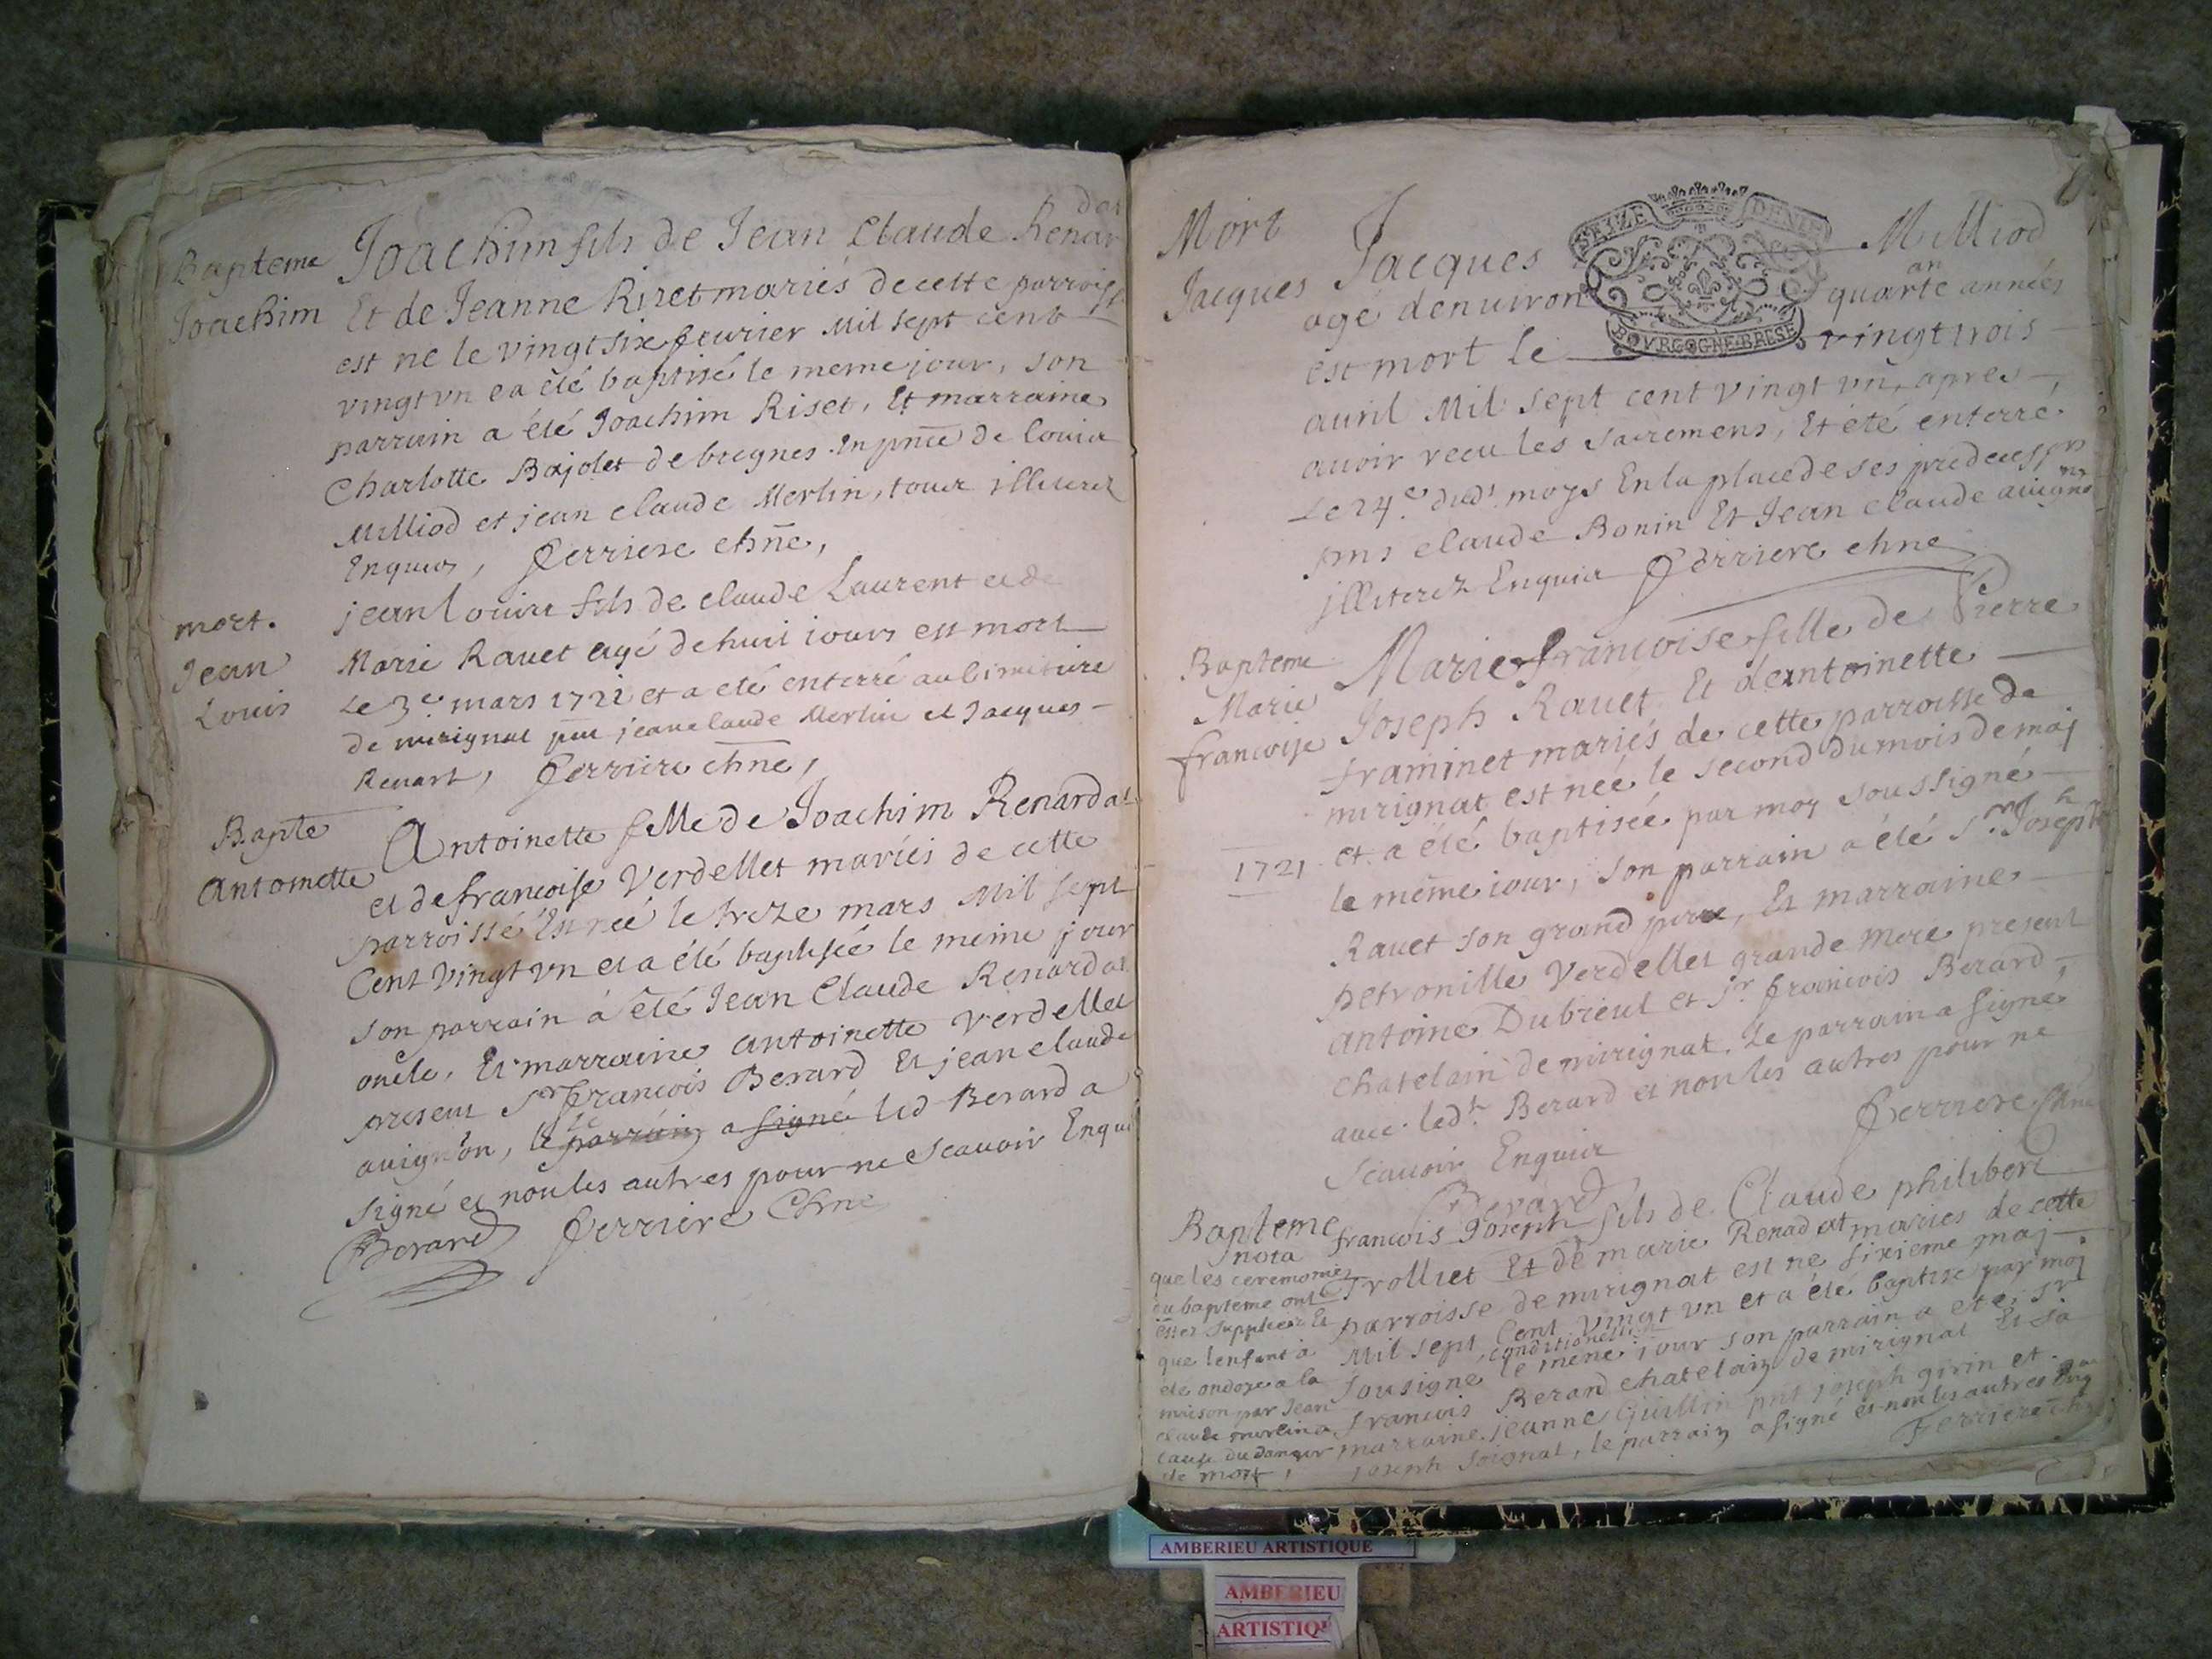 Bapteme
Joachim
Joachim fils de Jean Claude Renardat
Et de Jeanne Riset mariés de cette parroisse
est ne le vingt six feurier Mil sept cent
vingt vn ea été baptisé le meme jour, son
parrain a été Joachim Riset, Et marraine
Charlotte Bajolet de bregnes. En pnce de Louis
Milliod et jean claude Merlin, tous illiterez
Enquis, ferriere chne,
mort.
Jean
Louis
jean louis fils de claude Laurent et de
Marie Rauet agé de huit iours est mort
Le 3e mars 1721 et a eté enterré au Cimetiere
de mirignat pnt jean claude Merlin et Jacques
Renart, ferriere chne,
Bapte
Antoinette
Antoinette fille de Joachim Renardat
et de francoise Verdellet mariés de cette
parroisse Est neé le treze mars Mil sept
Cent vingt vn et a été baptisée le meme jour
son parrain a été Jean Claude Renardat
oncle, Et marraine antoinette Verdellet
present Sr francois Berard Et jean claude
auignon, le parrain a signé led Berard a
signé et non les autres pour ne scauoir Enquis
Berard ferriere Chne
Mort
Jacques
SEIZE DENIE
BOVRGOGNE BRESE
Jacques Milliod
age denuiron quarte an années
est mort le vingt trois
auril Mil sept cent vingt vn, apres
auoir receu les sacremens, Et été enterré
Le 24e dudt moys En la place de ses predecess rs
pns claude Bonin Et Jean claude auignon
illiterez Enquis ferriere chne
Bapteme
Marie
francoise
1721
Marie francoise fille de Pierre
Joseph Rauet Et deantoinette
framinet mariés de cette parroisse de
mirignat est neé le second du mois de maj
et a été baptisée par moy soussigné
le méme iour, son parrain a été Sr Joseph
Rauet son grand pere, Et marraine
petronille Verdellet grande mere present
antoine Dubreul et Sr francois Berard,
chatelain de mirignat. Le parrain a signé
auec ledt Berard et non les autres pour ne
scauoir Enquis ferriere Chne
Berard
Bapteme
nota
que les ceremonies
du bapteme ont
que lenfant a
été ondoye a la
maison par Jean
claude merlin a
cause du danger
de mort,
francois Joseph fils de Claude philibert
Trolliet Et de marie Renadat maries de cette
parroisse de mirignat est ne sixieme maj
Mil sept Cent vingt vn et a été baptise par moj
sousigne le méme iour son parrain a ete, Sr
francois Berard chatelain de mirignat Et sa
marraine jeanne Guillin pnt joseph girin et
joseph soignat, le parrain a signé et non les autres Enq
Ferriere Ch
AMBERIEU ARTISTIQUE
AMBERIEU
ARTISTIQU